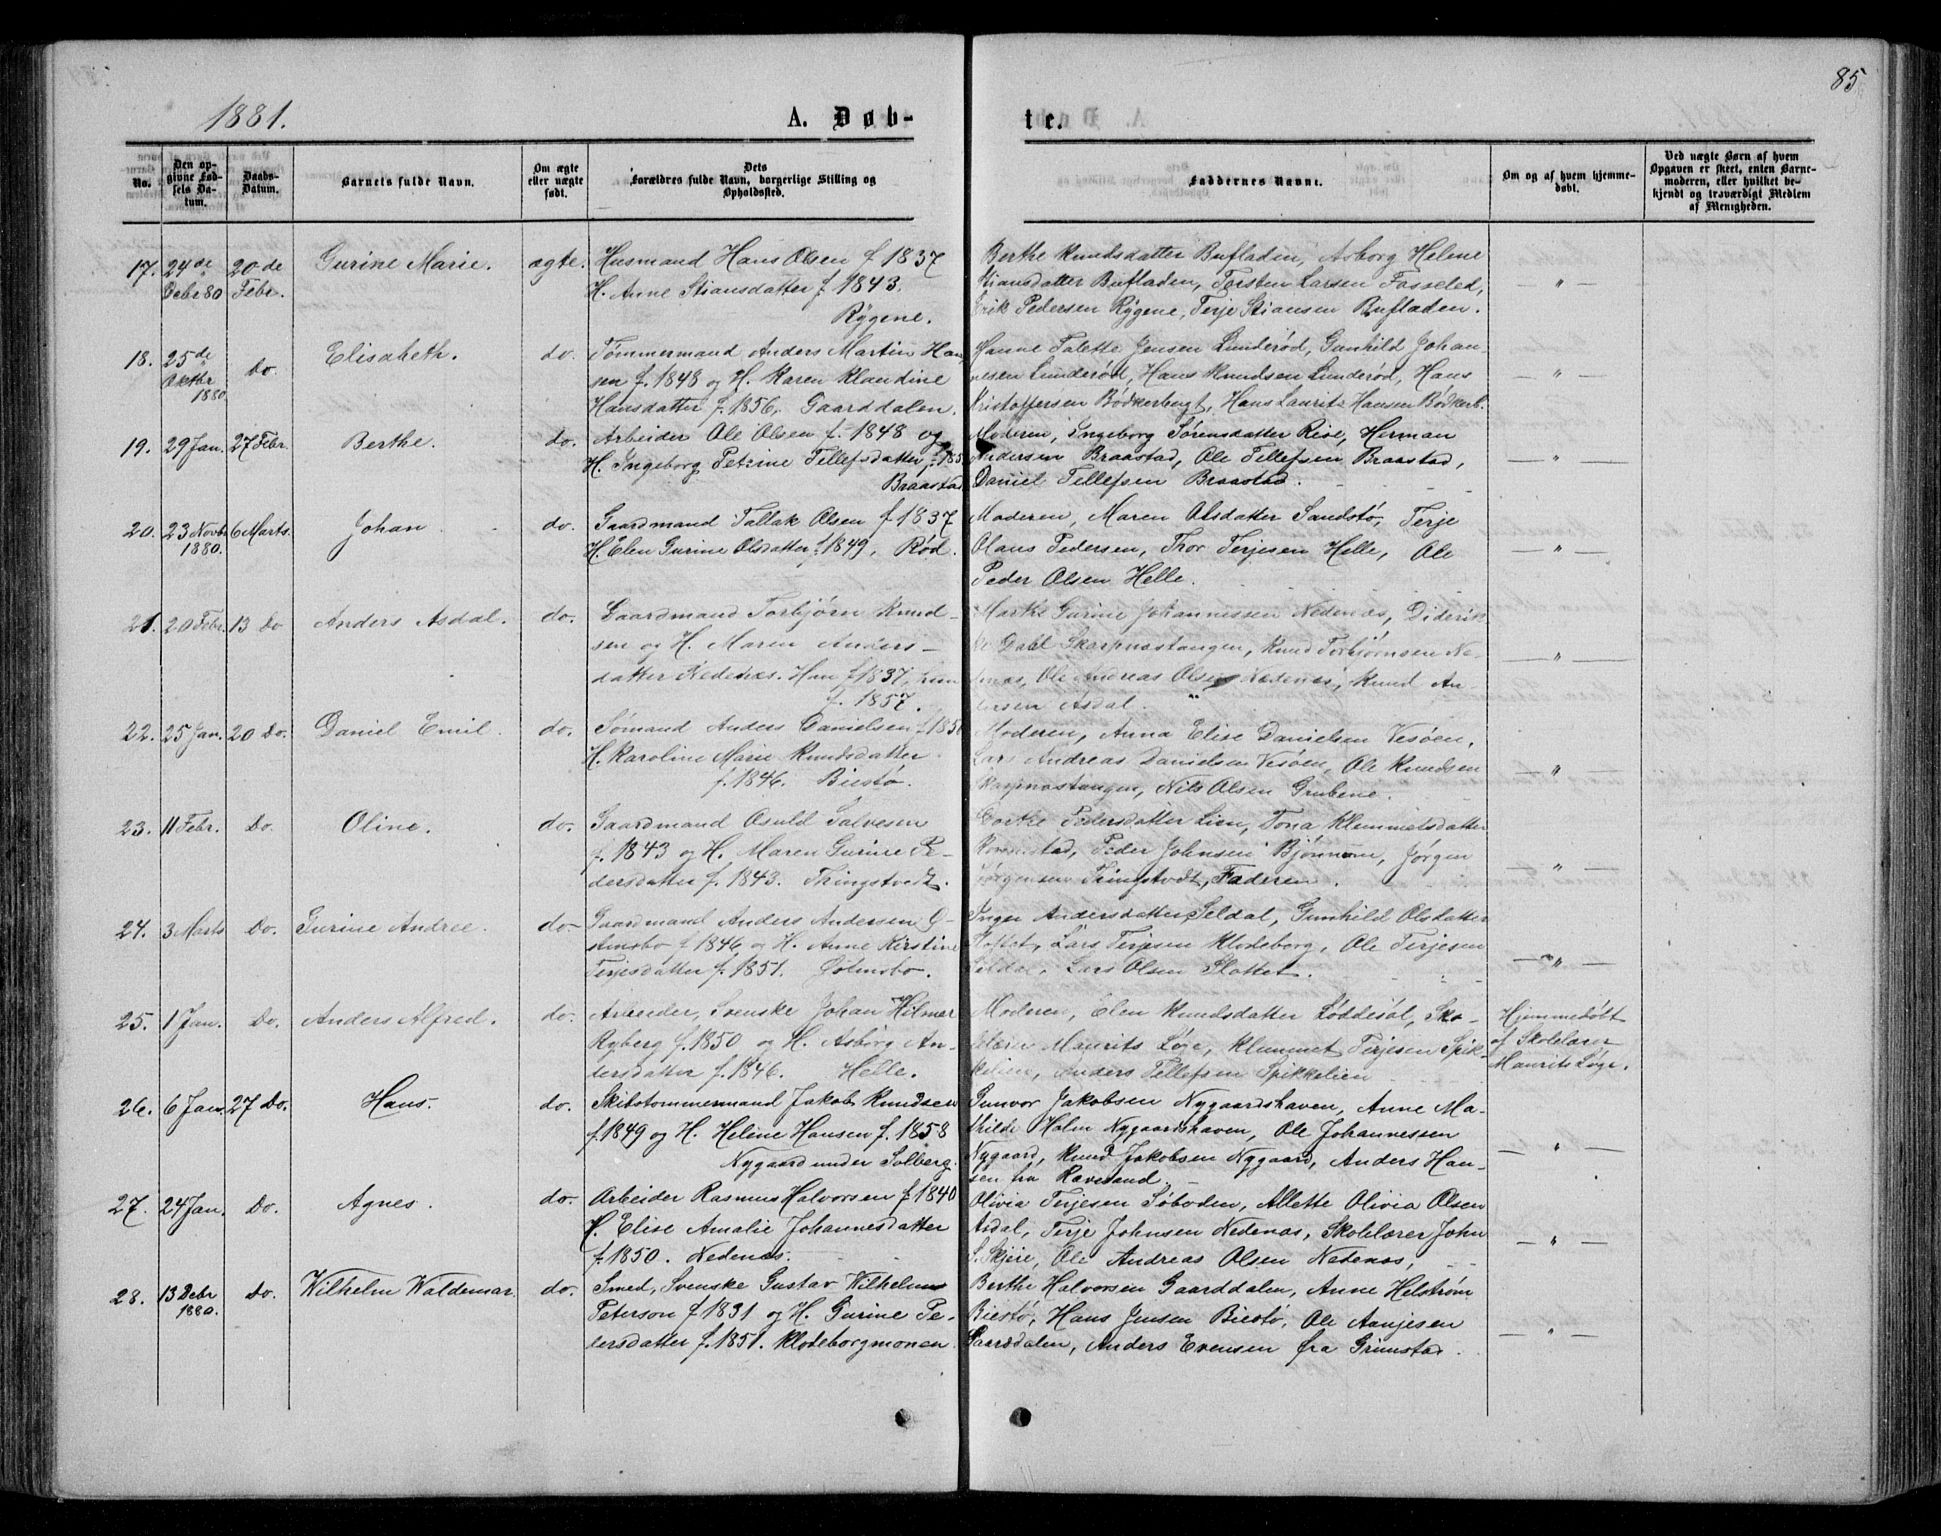 85
1881.
A. Døb-
te.
No.
Den op-
givne Fød-
sels Da-
tum.
Daabs-
Datum.
Barnets fulde Navn.
Om ægte
eller uægte
født.
Dets
Forældres fulde Navn, borgerlige Stilling og
Opholdssted.
Faddernes Navne.
Om og af hvem hjemme-
døbt.
Ved uægte Børn af hvem
Opgaven er skeet, enten Barne-
moderen, eller hvilket be-
kjendt og troværdigt Medlem
af Menigheden.
17. 24de 20de Gurine Marie. ægte. Husmand Hans Olsen f. 1837
Debr 80 Febr. H. Anne Stiansdatter f. 1843.
Rygene.
Berthe Knudsdatter Bufladen, Asborg Helene
Stiansdatter Bufladen, Torsten Larsen Fosseled,
Erik Pedersen Rygene, Terje Stiansen Bufladen.
— " —
18. 25de Do. Elisabeth. do. Tømmermand Anders Martin Han-
Oktbr sen f. 1848 og H. Karen Klaudine
1880 Hansdatter f. 1856. Gaarddalen.
Hanne Talette Jensen Lunderød, Gunhild Johan-
nesen Lunderød, Hans Knudsen Lunderød, Hans
Kristoffersen Bødkerbugt, Hans Laurits Hansen Bødkerb.
— " —
19. 29 Jan. 27 Febr. Berthe. do. Arbeider Ole Olsen f. 1848 og
H. Ingeborg Petrine Tellefsdatter f. 185
Braastad
Moderen, Ingeborg Sørensdatter Rise, Herman
Andersen Braastad, Ole Tellefsen Braastad,
Daniel Tellefsen Braastad.
— " —
20. 23 Novbr 6 Marts. Johan. do. Gaardmand Tallak Olsen f. 1837
1880. H. Elen Gurine Olsdatter f. 1849, Rød.
Moderen, Maren Olsdatter Sandstø, Terje
Olaus Pedersen, Thor Terjesen Helle, Ole
Peder Olsen Helle.
— " —
21. 20 Febr. 13 Do Anders Asdal. do. Gaardmand Torbjørn Knud-
sen og H. Maren Anders-
datter Nedenæs. Han f. 1837, hun
f. 1857.
Marthe Gurine Johannessen Nedenæs, Diderik-
ke Dahl Skarpnæstangen, Knud Torbjørnsen Ne-
denæs, Ole Andreas Olsen Nedenæs, Knud An-
dersen Asdal.
— " —
22. 25 Jan. 20 Do. Daniel Emil. do. Sømand Anders Danielsen f. 185
H. Karoline Marie Knudsdatter
f. 1846. Biestø.
Moderen, Anna Elise Danielsen Vesøen,
Lars Andreas Danielsen Vesøen, Ole Knudsen
Skarpnæstangen, Nils Olsen Grubene.
— " —
23. 11 Febr. Do. Oline. do. Gaardmand Osuld Salvesen
f. 1843 og H. Maren Gurine Pe-
dersdatter f. 1843. Thingstvedt.
Dorthe Pedersdatter Lien, Tona Klemmetsdatter
Peder Johnsen Bjønnum, Jørgen
Jørgensen Tingstvedt, Faderen.
— " —
24. 3 Marts Do. Gurine Andree. do. Gaardmand Anders Andersen Ø-
f. 1846 og H. Anne Kirstine
Terjesdatter f. 1851.
Inger Andersdatter Seldal, Gunhild Olsdatter
Slottet, Lars Terjesen Klodeborg, Ole Terjesen
Seldal, Lars Olsen Slottet.
— " —
25. 1 Jan. Do. Anders Alfred. do. Arbeider, Svenske Johan Hilmar
Ryberg f. 1850 og H. Asborg An-
dersdatter f. 1846. Helle.
Moderen, Elen Knudsdatter Løddesøl, Sko-
lelærer Maurits Løge, Klemmet Terjesen Spik-
kelien, Anders Tellefsen Spikkelien
Hjemmedøbt
af Skolelærer
Maurits Løge.
26. 6 Jan. 27 Do. Hans. do. Skibstømmermand Jakob Knudsen
f. 1849 og H. Helene Hansen f. 1858
Nygaard under Solberg.
Gunvor Jakobsen Nygaardshaven, Anne Ma-
thilde Holm Nygaardshaven, Ole Johannessen
Nygaard, Knud Jakobsen Nygaard, Anders Han-
sen fra Ravesand.
— " —
27. 24 Jan. Do. Agnes. do. Arbeider Rasmus Halvorsen f. 1840
H. Elise Amalie Johannesdatter
f. 1850. Nedenæs.
Olivia Terjesen Søboden, Allette Olivia Olsen
Asdal, Terje Johnsen Nedenæs, Skolelærer John
S. Skjeie, Ole Andreas Olsen Nedenæs,
— " —
28. 13 Debr Do. Wilhelm Waldemar. do. Smed, Svenske Gustav Wilhelm
1880. Peterson f. 1831 og H. Gurine Pe-
dersdatter f. 1851. Klodeborgmonen.
Berthe Halvorsen Gaarddalen, Anne Helstrøm
Biestø, Hans Jensen Biestø, Ole Aanjesen
Gaarddalen, Anders Evensen fra Grimstad.
— " —